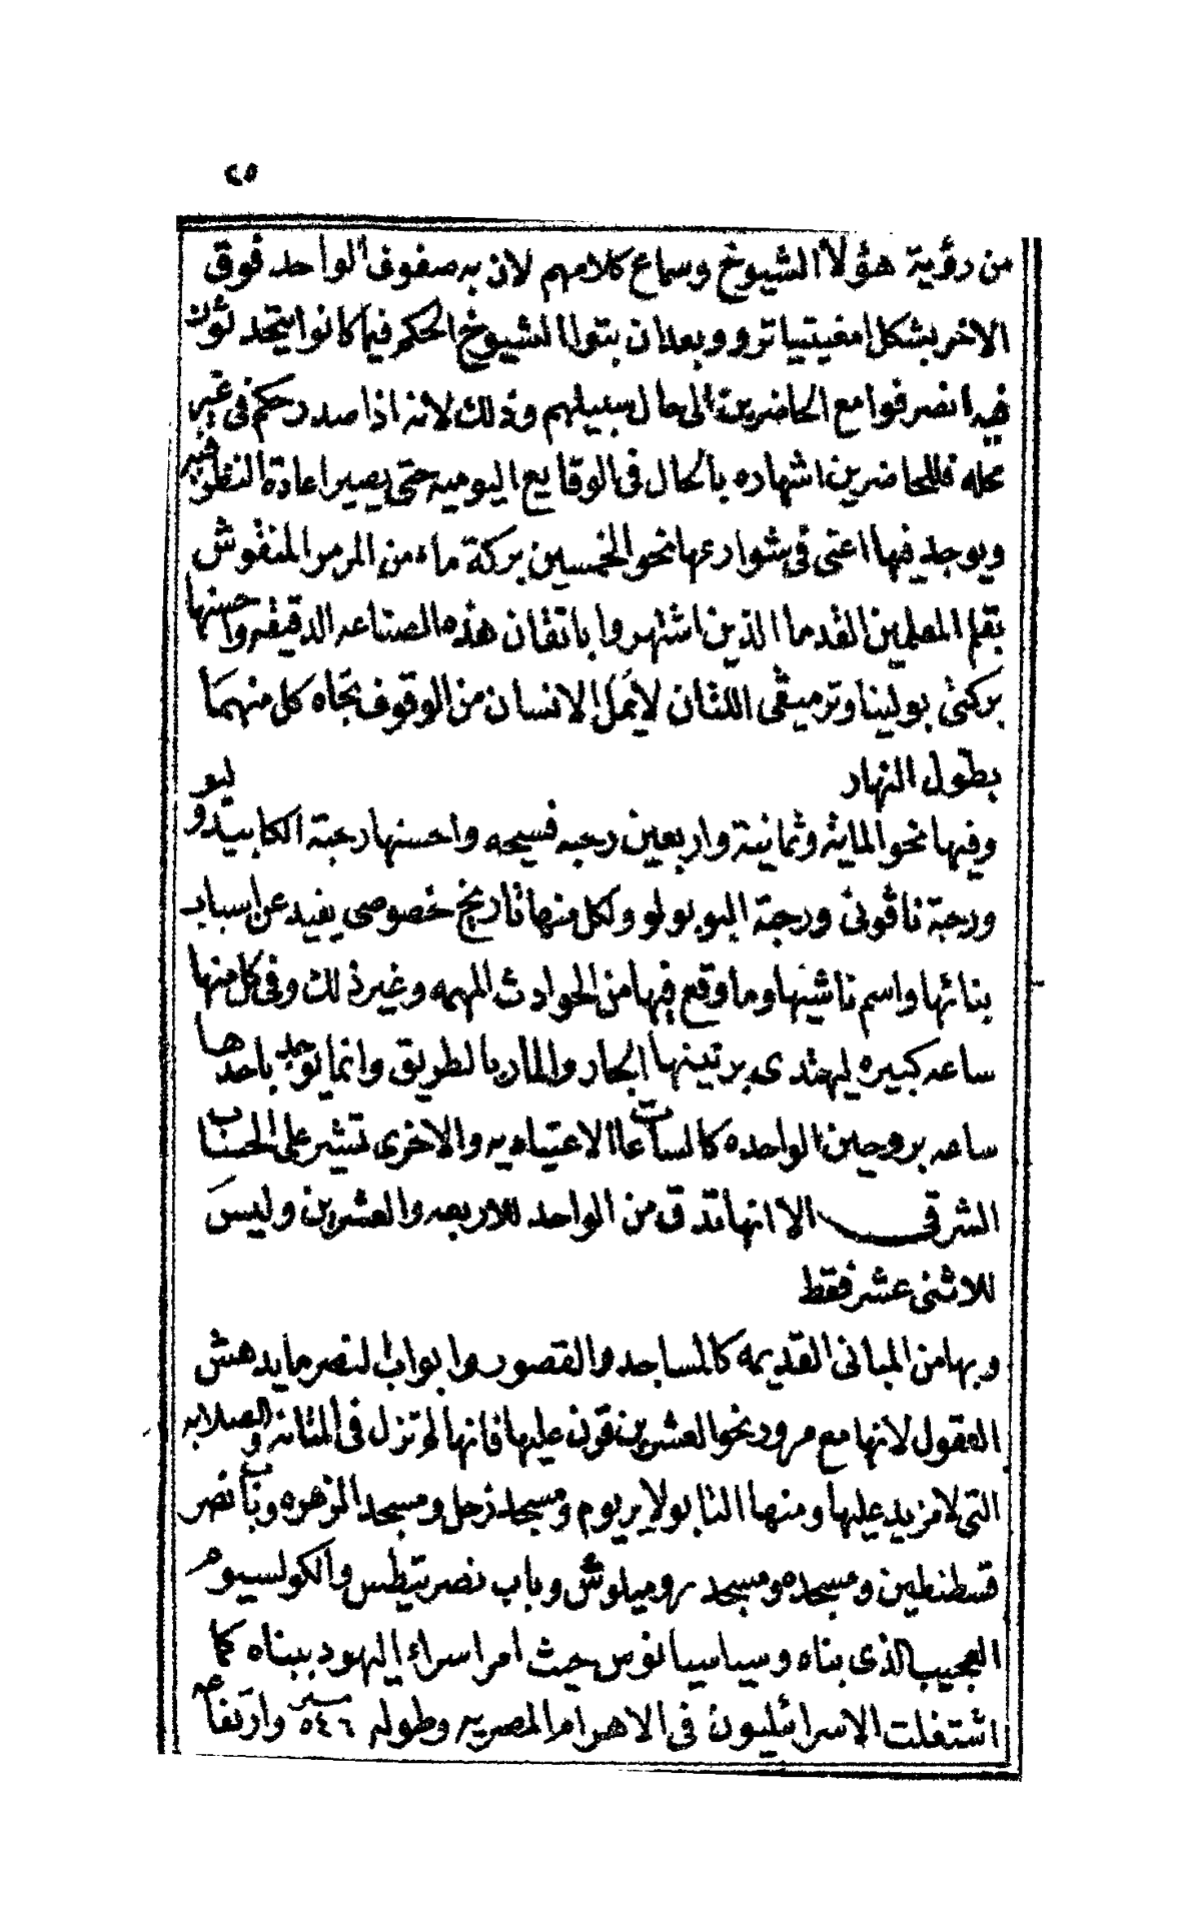 ٢٥
من رؤية هؤلاء الشيوخ وسماع كلامهم لان به صفوف الواحد فوق
الاخر بشكل امفيتياترو وبعد ان يتوا الشيوخ الحكم فيما كانوا يتحدثون
فيه انصرفوا مع الحاضرين الى حال سبيلهم وذلك لانه اذا صدر حكم فى غير
محله فللحاضرين اشهاره بالحال فى الوقايع اليوميه حتى يصير اعادة النظر فيه
ويوجد فيها اعنى فى شوارعها نحو الخمسين بركة ماء من المرمر المنقوش
بقلم المعلمين القدما الذين اشتهروا باتقان هذه الصناعه الدقيقه واحسنها
بركتى بولينا وترميقى اللتان لايمل الانسان من الوقوف تجاه كل منهما
بطول النهار
وفيها نحو الماية وثمانية واربعين رحبه فسيحه واحسنها رحبة الكابيتدوليو
ورحبة ناڤونى ورحبة البوبولو ولكل منها تاريخ خصوصى يفيد عن اسباب
بنائها واسم ناشيها وما وقع فيها من الحوادث المهمه وغير ذلك وفى كل منها
ساعه كبيره ليهتدى برتينها الجار والمار بالطريق وانما توجد باحدها
ساعه بروحين الواحده كالساعات الاعتياديه والاخرى تشير على الحساب
الشرقى الا انها تدق من الواحد للاربعه والعشرين وليس
للاثنى عشر فقط
وبها من المبانى القديمه كالمساجد والقصور وابواب النصر ما يدهش
العقول لانها مع مرور نحو العشرين قرن عليها فانها لم تزل فى المتانه والصلابه
التى لا مزيد عليها ومنها التابولاريوم ومسجد زحل ومسجد الزهره وباب نصر
قسطنطين ومسجده ومسجد روميلوش وباب نصر تيطس والكولسيوم
العجيب الذى بناه وسپاسيانوس حيث امر اسراء اليهود ببناه كما
اشتغلت الاسرائيليون فى الاهرام المصريه وطوله ٥٤٦ متر وارتفاعه